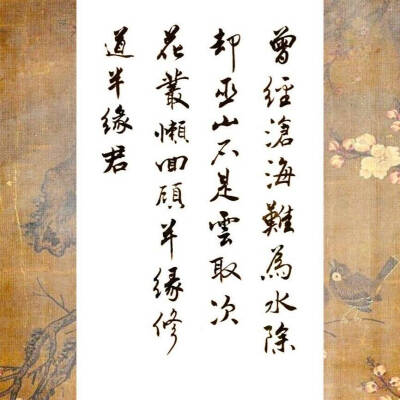 曾經滄海難為水除
却巫山不是雲取次
花叢懶回顧半緣修
道半緣君